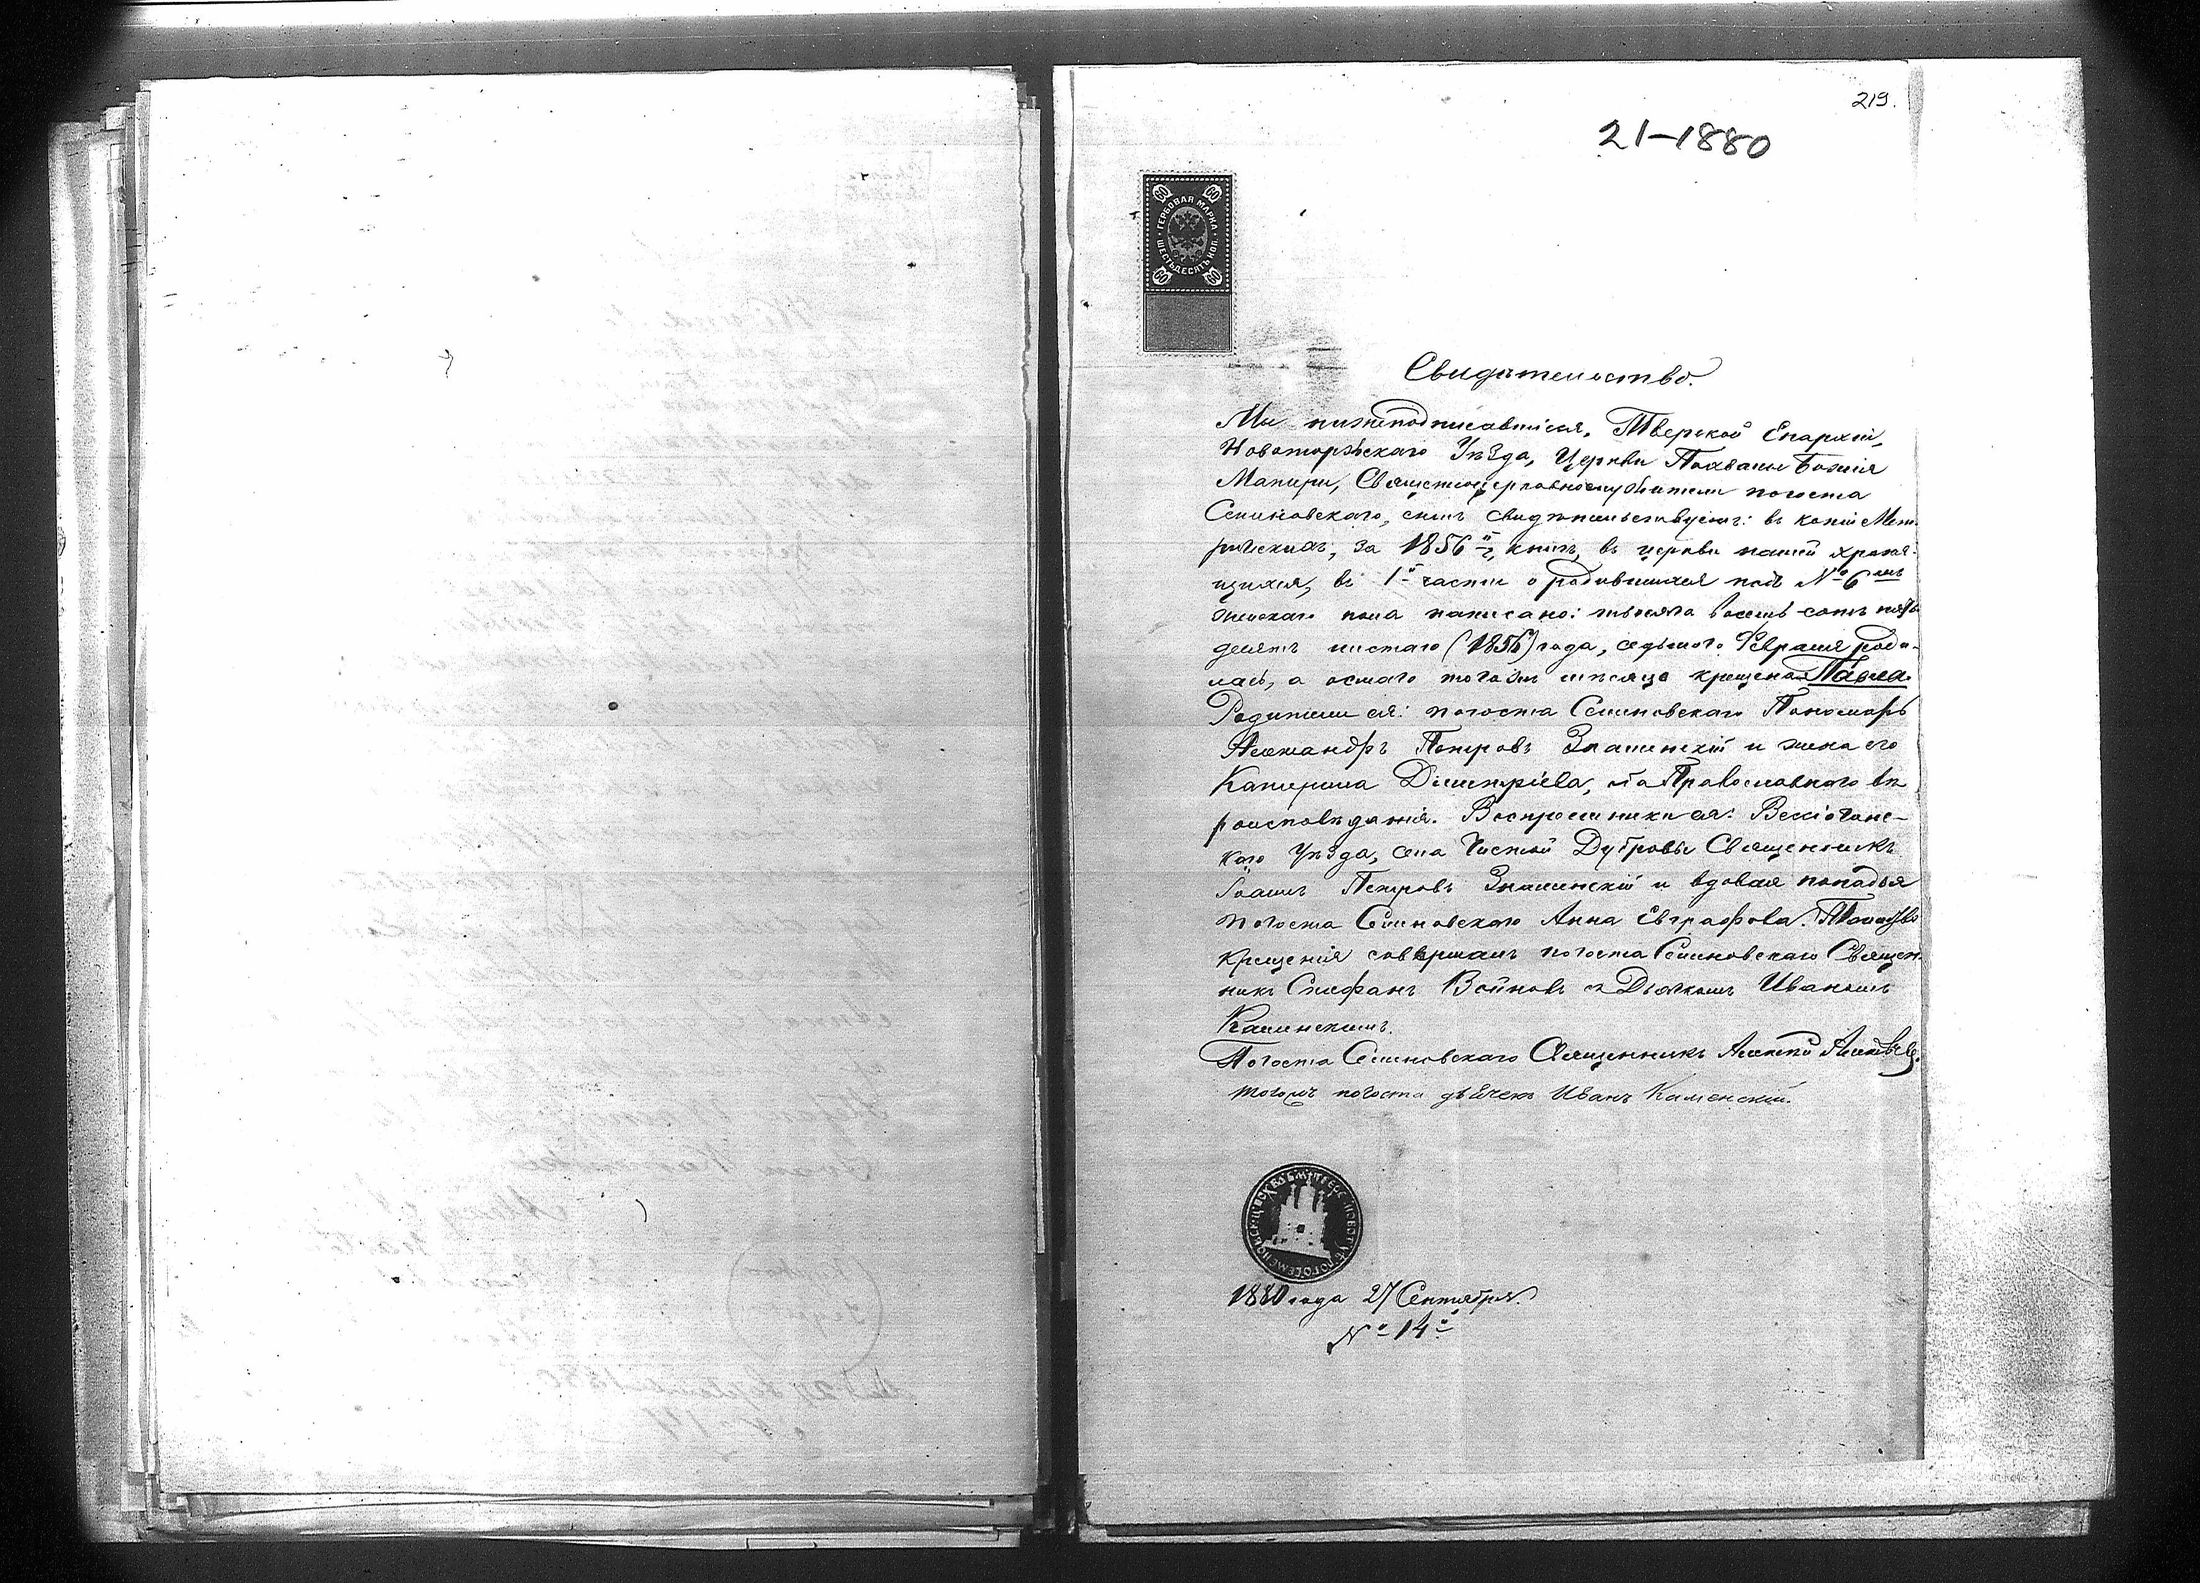 219.
21-1880
60 60
ГЕРБОВАЯ МАРКА
ШЕСТЬДЕСЯТЬ КОП.
60 60
Свидѣтельство.
Мы нижеподписавшіеся, Тверской Епархіи,
Новоторжскаго Уѣзда, Церкви Похвалы Божія
Матери, Священноцерковнослужители погоста
Семеновскаго, симъ свидѣтельствуемъ: въ копіи Мет-
рическихъ, за 1856 й г., книгъ, въ церкви нашей храня-
щихся, въ 1й части о родившихся подъ № 6 мъ
женскаго пола написано: тысяча восемь сотъ пять
десятъ шестаго (1856) года, седьмого Февраля роди-
лась, а осмаго того же мѣсяца крещена Павла.
Родители ея: погоста Семеновскаго Пономарь
Александръ Петровъ Знаменскій и жена его
Катерина Димитріева, оба Православнаго вѣ
роисповѣданія. Воспріемники ея: Весьегонс-
каго Уѣзда, села Чистой Дубровы Священникъ
Іоаннъ Петровъ Знаменскій и вдовая попадья
погоста Семеновскаго Анна Евграфова. Таинство
крещенія совершалъ погоста Семеновскаго Священ-
никъ Стефанъ Войновъ съ Дьячкомъ Иваномъ
Каменскимъ.
Погоста Семеновскаго Священникъ Алексѣй
тогожъ погоста дьячекъ Иванъ Каменскій.
1880 года 27 Сентября.
№ 14й